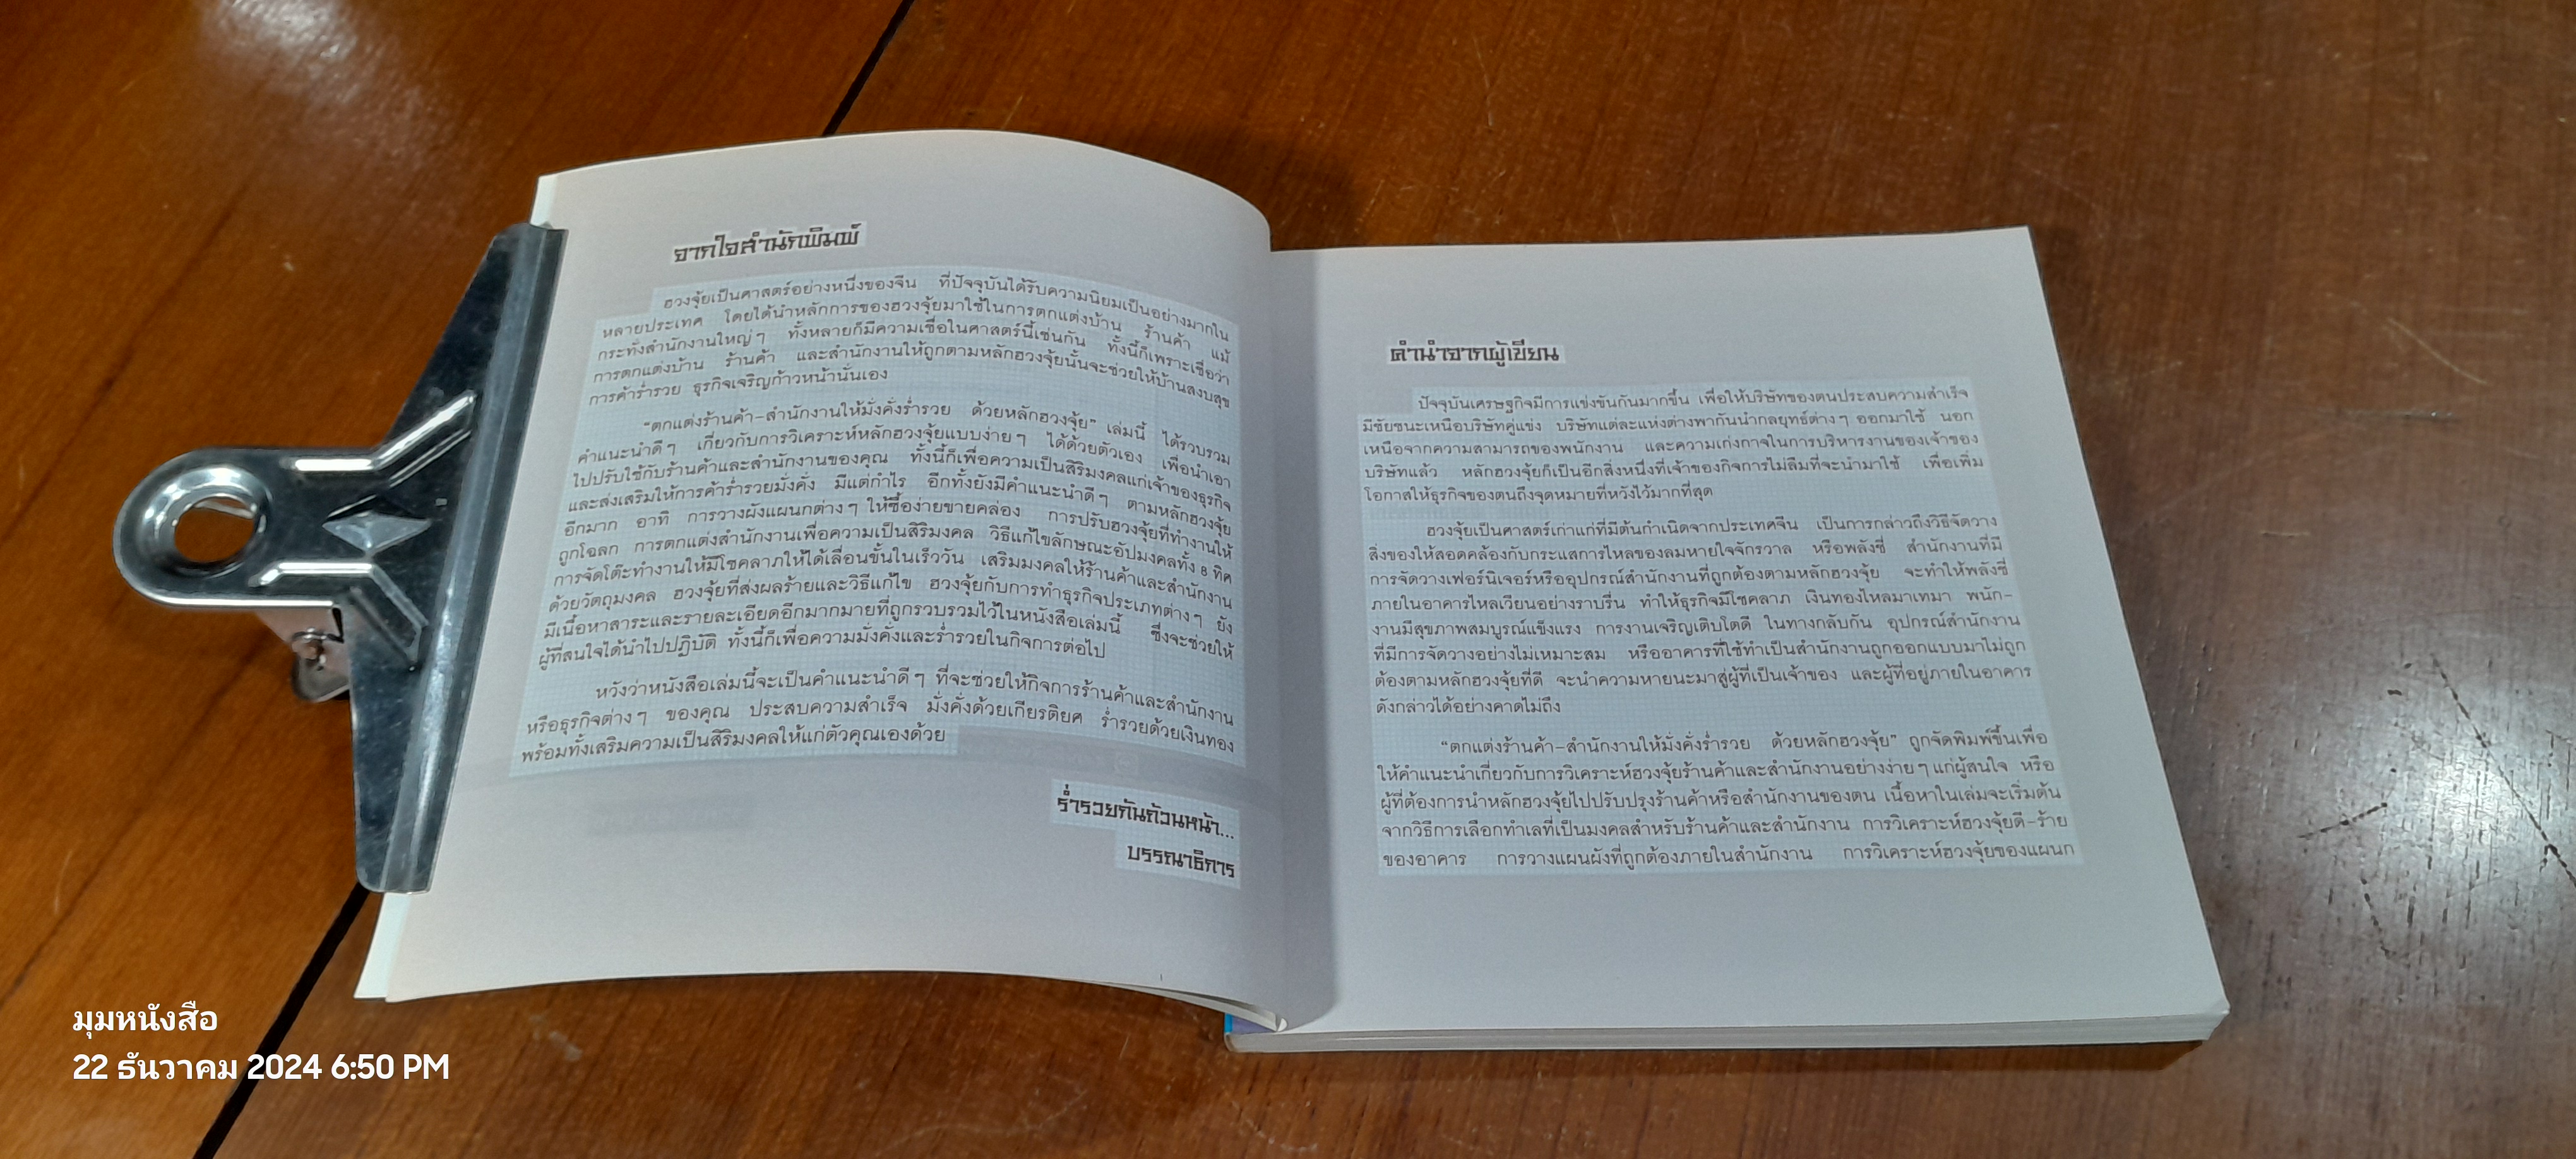 จากใจสำนักพิมพ์
ฮวงจุ้ยเป็นศาสตร์อย่างหนึ่งของจีน ที่ปัจจุบันได้รับความนิยมเป็นอย่างมากใน
หลายประเทศ โดยได้นำหลักการของฮวงจุ้ยมาใช้ในการตกแต่งบ้าน ร้านค้า แม้
กระทั่งสำนักงานใหญ่ๆ ทั้งหลายก็มีความเชื่อในศาสตร์นี้เช่นกัน ทั้งนี้ก็เพราะเชื่อว่า
การตกแต่งบ้าน ร้านค้า และสำนักงานให้ถูกตามหลักฮวงจุ้ยนั้นจะช่วยให้บ้านสงบสุข
การค้าร่ำรวย ธุรกิจเจริญก้าวหน้านั่นเอง
"ตกแต่งร้านค้า-สำนักงานให้มั่งคั่งร่ำรวย ด้วยหลักฮวงจุ้ย" เล่มนี้ ได้รวบรวม
คำแนะนำดีๆ เกี่ยวกับการวิเคราะห์หลักฮวงจุ้ยแบบง่ายๆ ได้ด้วยตัวเอง เพื่อนำเอา
ไปปรับใช้กับร้านค้าและสำนักงานของคุณ ทั้งนี้ก็เพื่อความเป็นสิริมงคลแก่เจ้าของธุรกิจ
และส่งเสริมให้การค้าร่ำรวยมั่งคั่ง มีแต่กำไร อีกทั้งยังมีคำแนะนำดีๆ ตามหลักฮวงจุ้ย
อีกมาก อาทิ การวางผังแผนกต่างๆ ให้ซื้อง่ายขายคล่อง การปรับฮวงจุ้ยที่ทำงานให้
ถูกโฉลก การตกแต่งสำนักงานเพื่อความเป็นสิริมงคล วิธีแก้ไขลักษณะอัปมงคลทั้ง 8 ทิศ
การจัดโต๊ะทำงานให้มีโชคลาภให้ได้เลื่อนขั้นในเร็ววัน เสริมมงคลให้ร้านค้าและสำนักงาน
ด้วยวัตถุมงคล ฮวงจุ้ยที่ส่งผลร้ายและวิธีแก้ไข ฮวงจุ้ยกับการทำธุรกิจประเภทต่างๆ ยัง
มีเนื้อหาสาระและรายละเอียดอีกมากมายที่ถูกรวบรวมไว้ในหนังสือเล่มนี้ ซึ่งจะช่วยให้
ผู้ที่สนใจได้นำไปปฏิบัติ ทั้งนี้ก็เพื่อความมั่งคั่งและร่ำรวยในกิจการต่อไป
หวังว่าหนังสือเล่มนี้จะเป็นคำแนะนำดีๆ ที่จะช่วยให้กิจการร้านค้าและสำนักงาน
หรือธุรกิจต่างๆ ของคุณ ประสบความสำเร็จ มั่งคั่งด้วยเกียรติยศ ร่ำรวยด้วยเงินทอง
พร้อมทั้งเสริมความเป็นสิริมงคลให้แก่ตัวคุณเองด้วย
ร่ำรวยกันถ้วนหน้า...
บรรณาธิการ
คำนำจากผู้เขียน
ปัจจุบันเศรษฐกิจมีการแข่งขันกันมากขึ้น เพื่อให้บริษัทของตนประสบความสำเร็จ
มีชัยชนะเหนือบริษัทคู่แข่ง บริษัทแต่ละแห่งต่างพากันนำกลยุทธ์ต่างๆ ออกมาใช้ นอก
เหนือจากความสามารถของพนักงาน และความเก่งกาจในการบริหารงานของเจ้าของ
บริษัทแล้ว หลักฮวงจุ้ยก็เป็นอีกสิ่งหนึ่งที่เจ้าของกิจการไม่ลืมที่จะนำมาใช้ เพื่อเพิ่ม
โอกาสให้ธุรกิจของตนถึงจุดหมายที่หวังไว้มากที่สุด
ฮวงจุ้ยเป็นศาสตร์เก่าแก่ที่มีต้นกำเนิดจากประเทศจีน เป็นการกล่าวถึงวิธีจัดวาง
สิ่งของให้สอดคล้องกับกระแสการไหลของลมหายใจจักรวาล หรือพลังชี่ สำนักงานที่มี
การจัดวางเฟอร์นิเจอร์หรืออุปกรณ์สำนักงานที่ถูกต้องตามหลักฮวงจุ้ย จะทำให้พลังชี่
ภายในอาคารไหลเวียนอย่างราบรื่น ทำให้ธุรกิจมีโชคลาภ เงินทองไหลมาเทมา พนัก-
งานมีสุขภาพสมบูรณ์แข็งแรง การงานเจริญเติบโตดี ในทางกลับกัน อุปกรณ์สำนักงาน
ที่มีการจัดวางอย่างไม่เหมาะสม หรืออาคารที่ใช้ทำเป็นสำนักงานถูกออกแบบมาไม่ถูก
ต้องตามหลักฮวงจุ้ยที่ดี จะนำความหายนะมาสู่ผู้ที่เป็นเจ้าของ และผู้ที่อยู่ภายในอาคาร
ดังกล่าวได้อย่างคาดไม่ถึง
"ตกแต่งร้านค้า-สำนักงานให้มั่งคั่งร่ำรวย ด้วยหลักฮวงจุ้ย" ถูกจัดพิมพ์ขึ้นเพื่อ
ให้คำแนะนำเกี่ยวกับการวิเคราะห์ฮวงจุ้ยร้านค้าและสำนักงานอย่างง่ายๆ แก่ผู้สนใจ หรือ
ผู้ที่ต้องการนำหลักฮวงจุ้ยไปปรับปรุงร้านค้าหรือสำนักงานของตน เนื้อหาในเล่มจะเริ่มต้น
จากวิธีการเลือกทำเลที่เป็นมงคลสำหรับร้านค้าและสำนักงาน การวิเคราะห์ฮวงจุ้ยดี-ร้าย
ของอาคาร การวางแผนผังที่ถูกต้องภายในสำนักงาน การวิเคราะห์ฮวงจุ้ยของแผนก
มุมหนังสือ
22 ธันวาคม 2024 6:50 PM